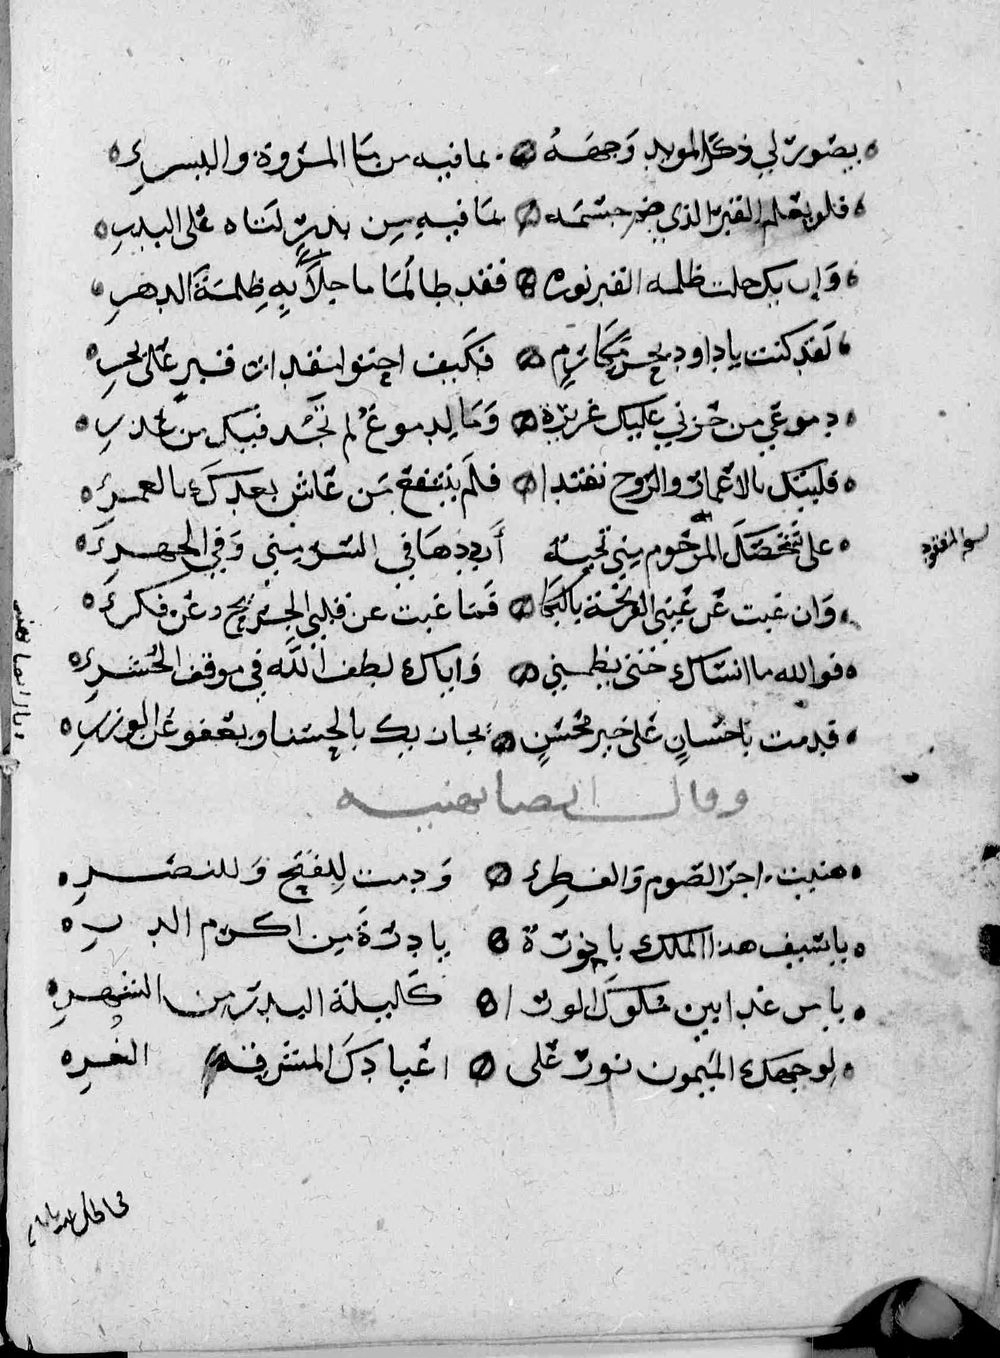 يصور لي ذكر المويد وجهه بما فيه من ما المروة والبسر
فلو يعلم القبر الذي ضم جسمه بما فيه من بدر لتاه على البدر
وان يك حلت ظلمه القبر نوره فقد طالما ما جلا به ظلمة الدهر
لقد كنت ياداود بحر مكارم فكيف احتوا لفقدان قبر على بحر
دموعي من حزني عليك غزيرة وما لدموع لم تجد فيك من عذر
فليتك بالاعمار والروح تفتدا فلم ينتفع من عاش بعدك بالعمر
على شخصك المرحوم مني تحية أرددها في السر مني وفي الجهر
وان غبت عن عيني القريحة بالبكا فما غبت عن قلبي الجريح وعن فكري
فوالله ما انساك حتى يضمني واياك لطف الله في موقف الحشر
قدمت باحسان على خير محسن يجازيك بالحسنا ويعفو عن الوزر
وقال ايضا يهنيه
هنيت اجر الصوم والفطر ودمت للفتح وللنصر
ياسيف هذا الملك يا درة من اكرم الدر
يا من غدا بين ملوك الورا كليلة البدر من الشهر
لوجهك الميمون نور على اعيادك المشرقة الغر